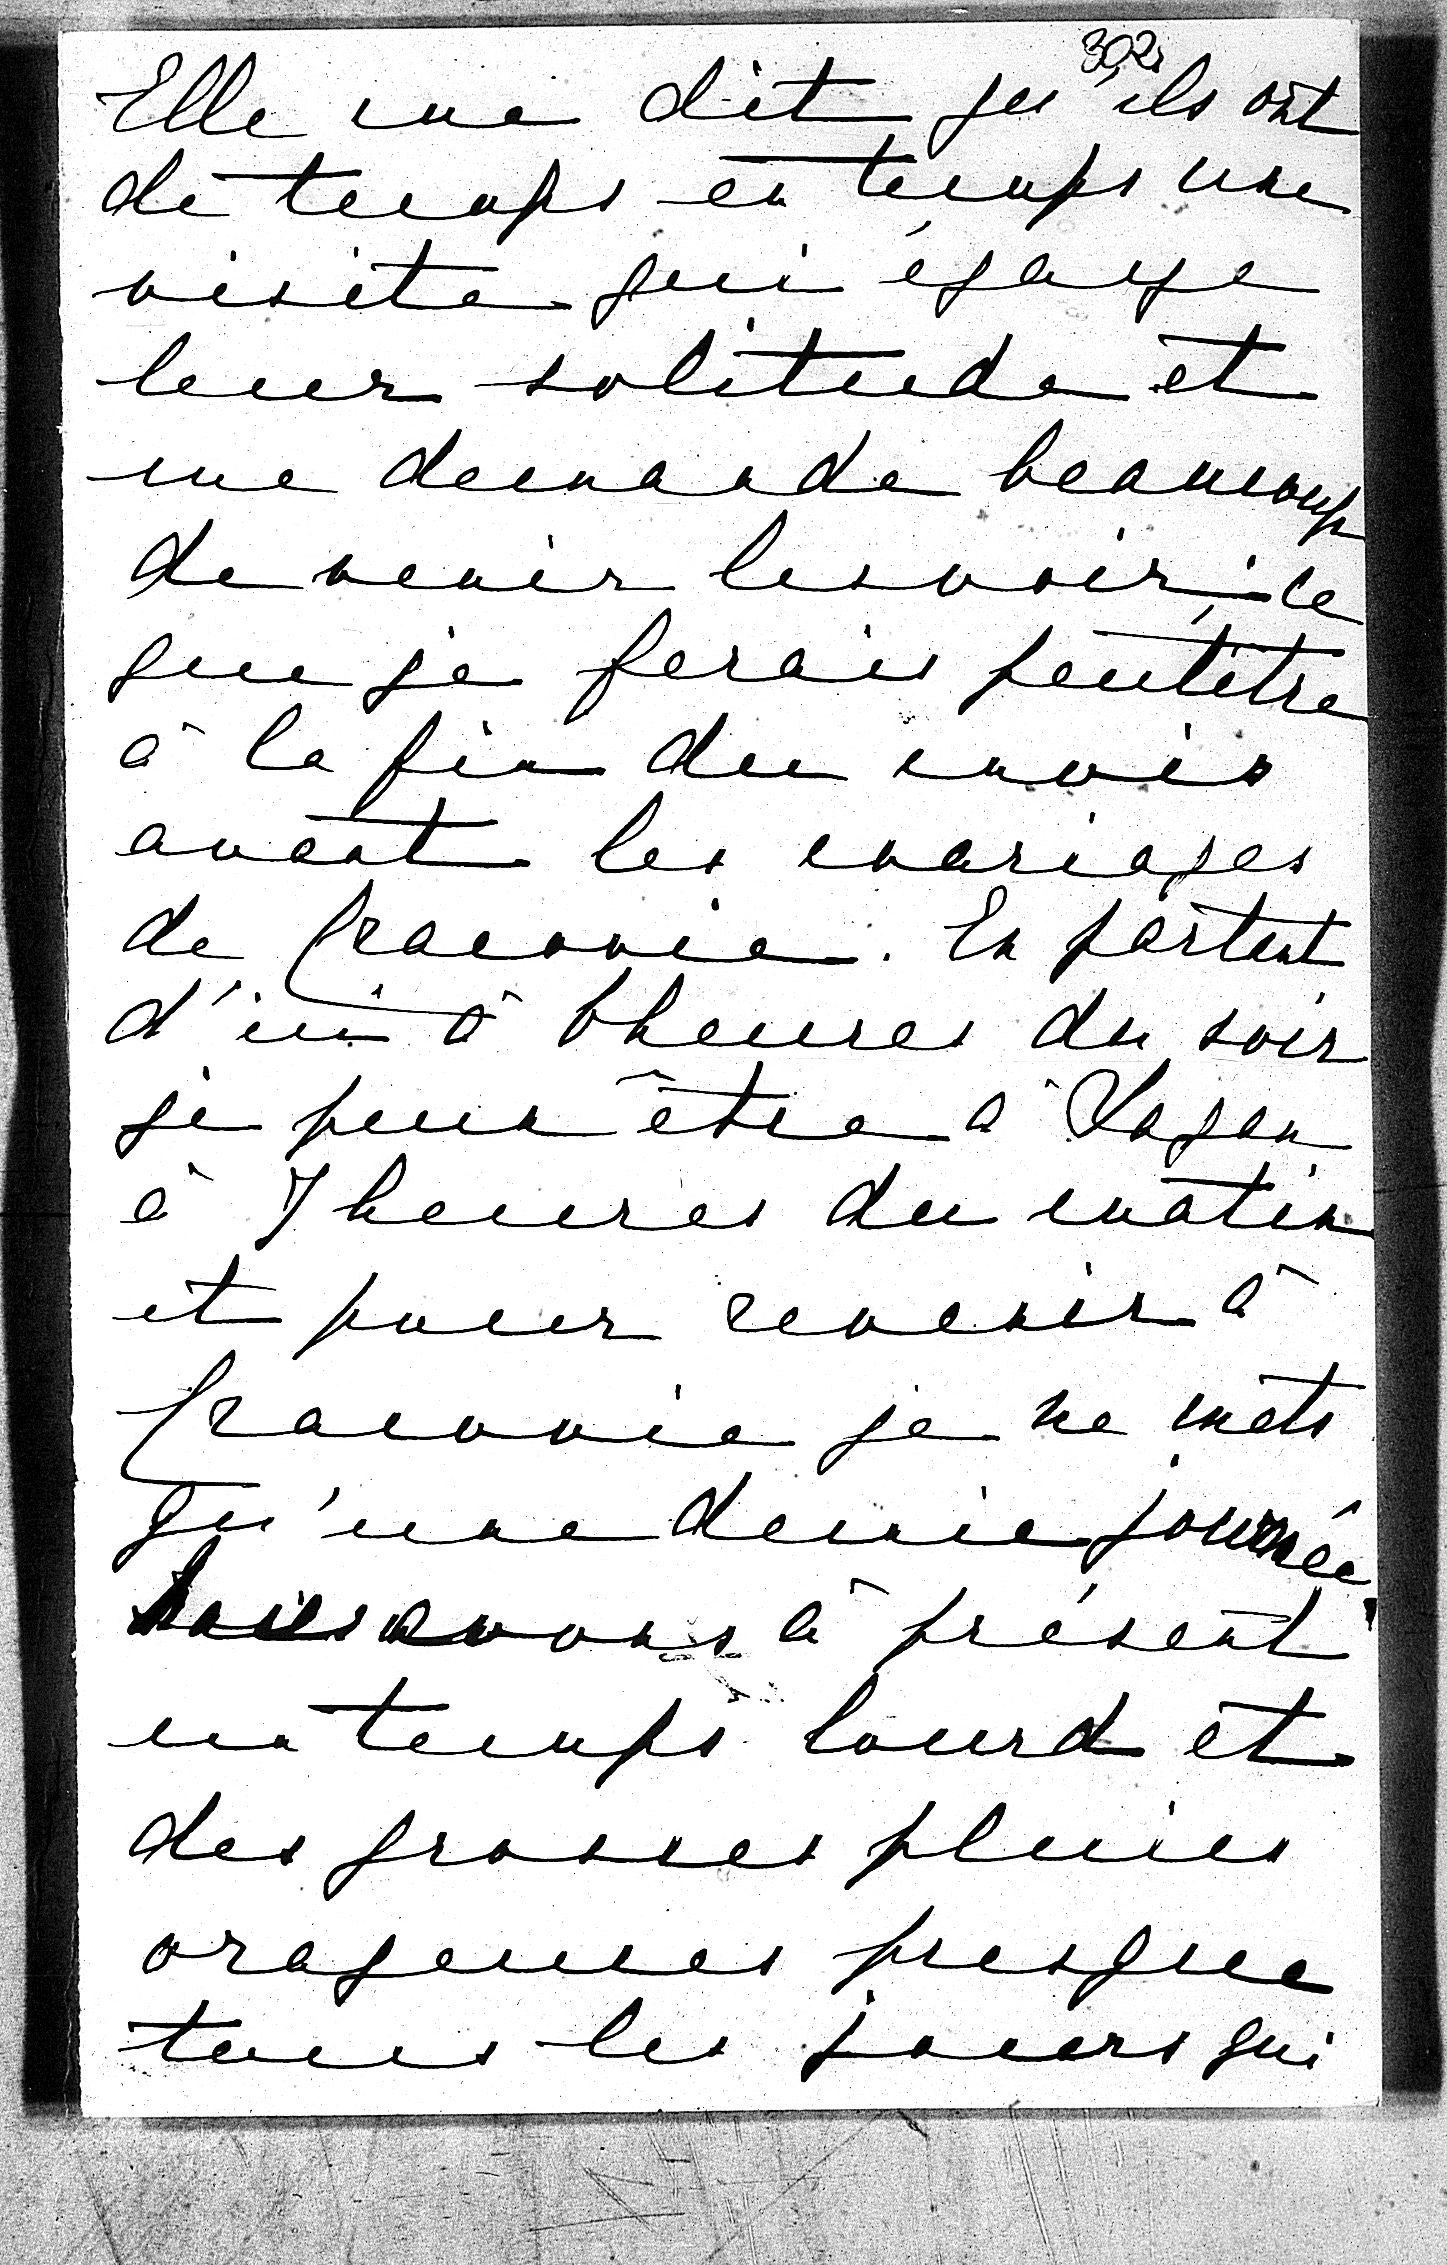 302
Elle me dit qu'ils ont
de temps en temps une
visite qui égaye
leur solitude et
me demande beaucoup
de venir les voir, ce
que je ferais peutêtre
à la fin du mois
avant les mariages
de Cracovie. En partant
d'ici à 6 heures du soir
je peux être à Sagan
à 7 heures du matin
et pour revenir à
Cracovie je ne mets
qu'une demie journée.
Nous avons à présent
un temps lourd et
des grosses pluies
orageuses presque
tous les jours qui